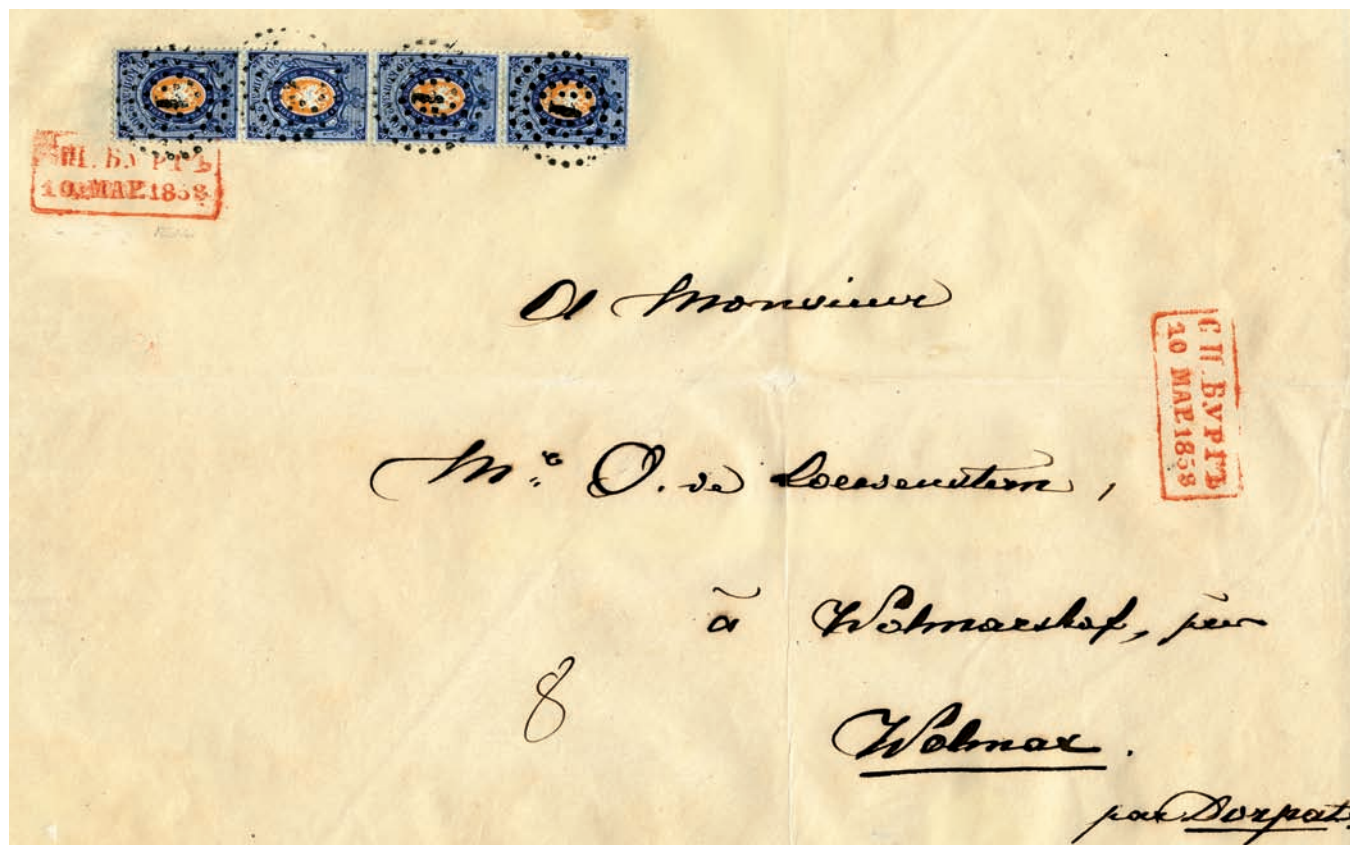 С.П.БУРГЪ
10 МАР.1858
A Monsieur
С.П.БУРГЪ
10 МАР.1858
O. de Loewenstern,
à Wolmarshof, per
8
Wolmar.
par Dorpat.